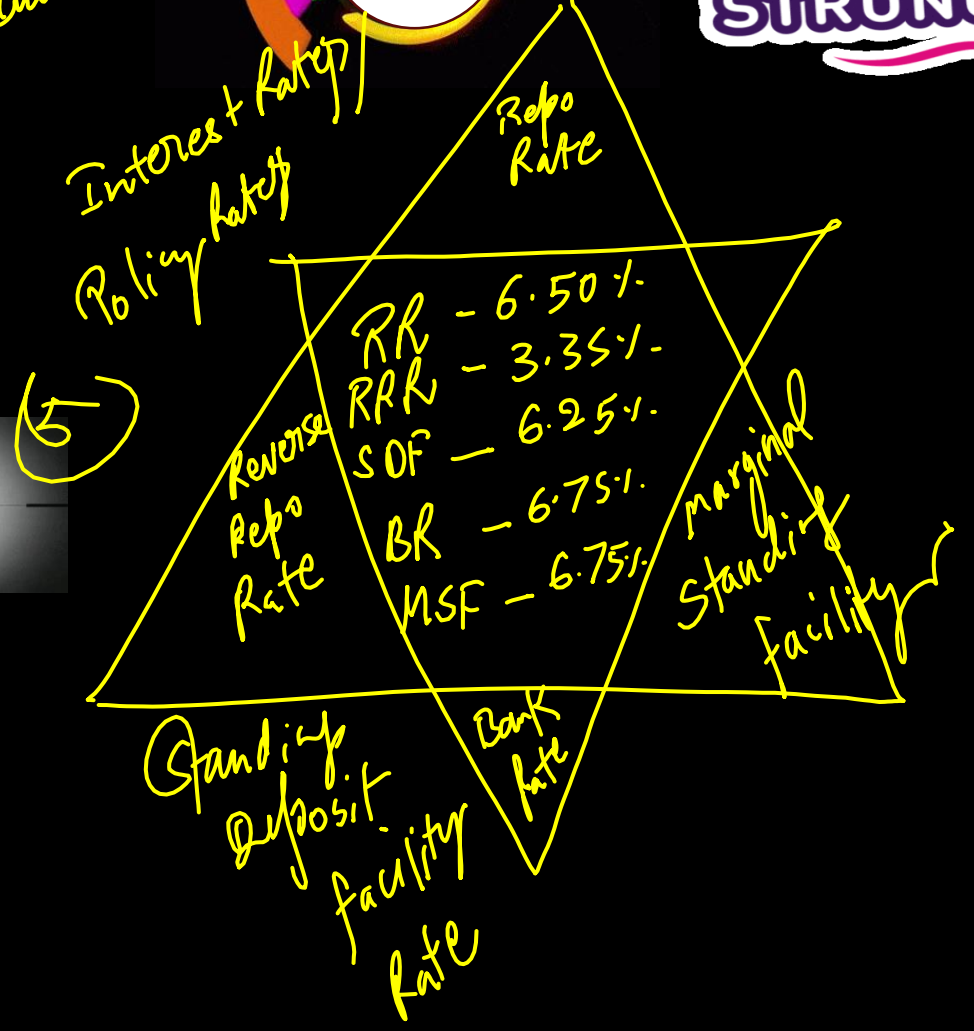 STRONG
Interest Rates/
Policy Rates
5
Repo
Rate
RR - 6.50%
RRR - 3.35%
SDF - 6.25%
BR - 6.75%
MSF - 6.75%
Reverse
Repo
Rate
Marginal
Standing
Facility
Bank
Rate
Standing
Deposit
Facility
Rate